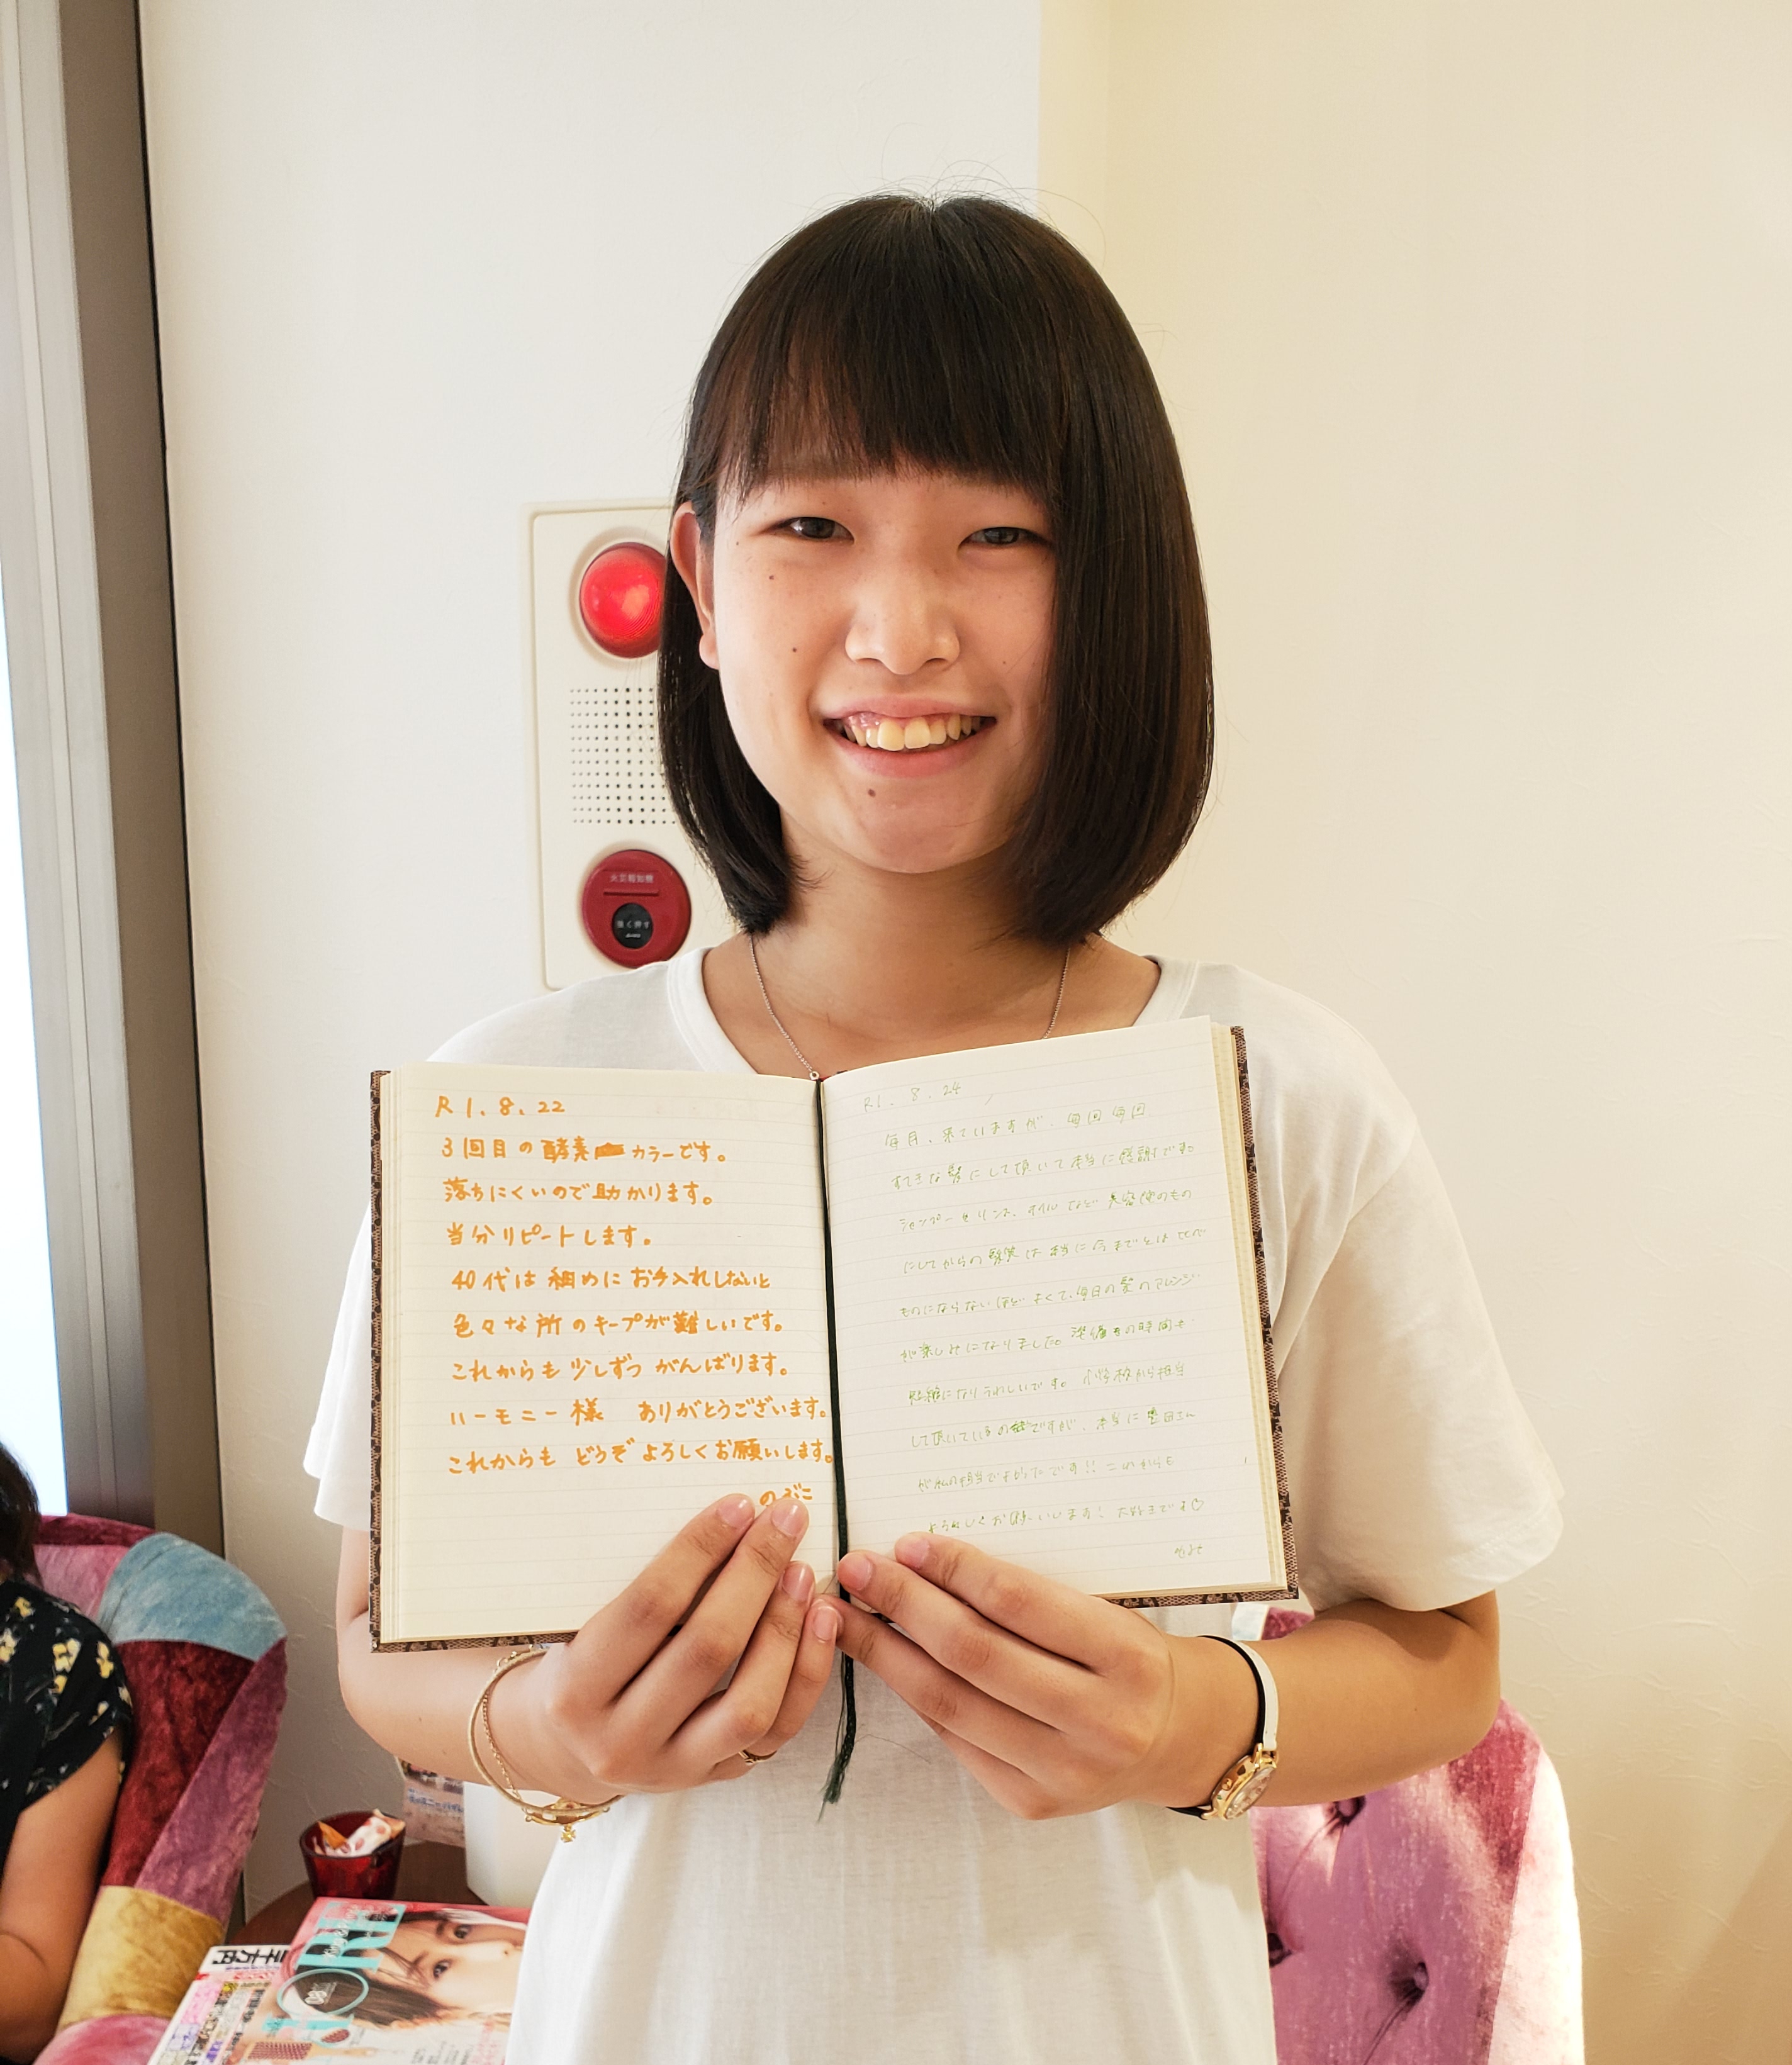 R1.8.22
3回目の酵素カラーです。
落ちにくいので助かります。
当分リピートします。
40代は細めにお手入れしないと
色々な所のキープが難しいです。
これからも少しずつがんばります。
ハーモニー様 ありがとうございます。
これからもどうぞよろしくお願いします。
のぶこ
R1.8.24
毎月、来ていますが、毎回毎回
すてきな髪にして頂いて本当に感謝です。
シャンプーやリンス、オイルなど美容院のもの
にしてからの髪質は本当に今までとは比べ
ものにならないほどよくて、毎日の髪のアレンジ
が楽しみになりました。準備の時間も
短縮になりうれしいです。小学校から担当
して頂いているの
ですが、本当に豊田さん
が私の担当でよかったです!! これからも
よろしくお願いします! 大好きです♡
火災報知機
強く押す
MORE